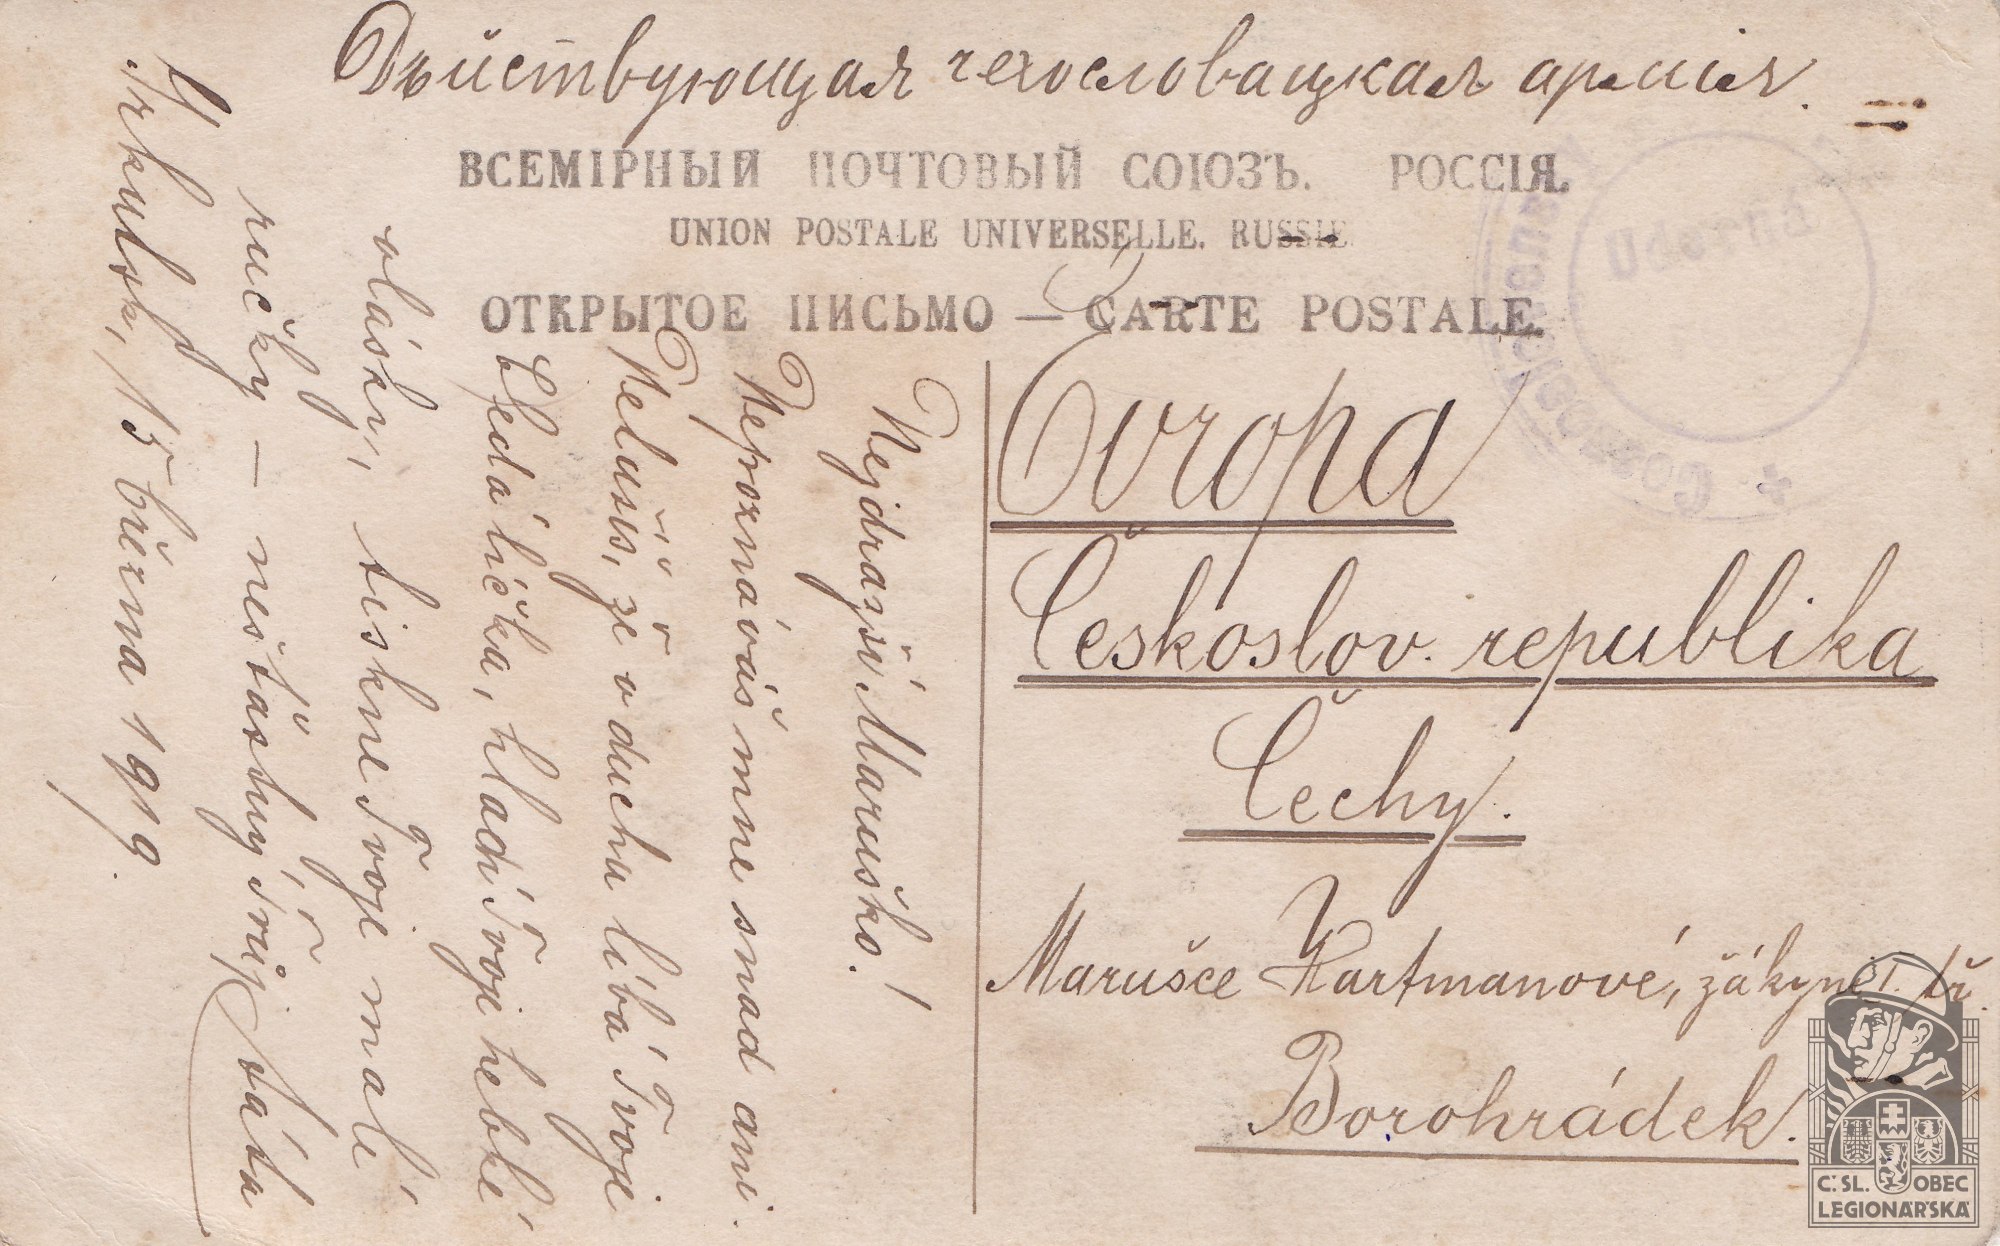 Дѣйствующая чехословацкая армія.
ВСЕМІРНЫЙ ПОЧТОВЫЙ СОЮЗЪ. РОССІЯ.
UNION POSTALE UNIVERSELLE. RUSSIE.
ОТКРЫТОЕ ПИСЬМО — CARTE POSTALE.
Nejdražší Maruško!
Nepoznáváš mne snad ani.
Netušíš, že v duchu líbá Tvoje
líčka, hladí Tvoje hebké
vlásky, tiskne Tvoje malé
ručky — nešťastný Tvůj táta
V Irkutsku, 15 března 1919.
Evropa
Českoslov. republika
Čechy.
Marušce Hartmanové, žákyně I. tř.
Borohrádek.
Č. SL. OBEC
LEGIONÁŘSKÁ